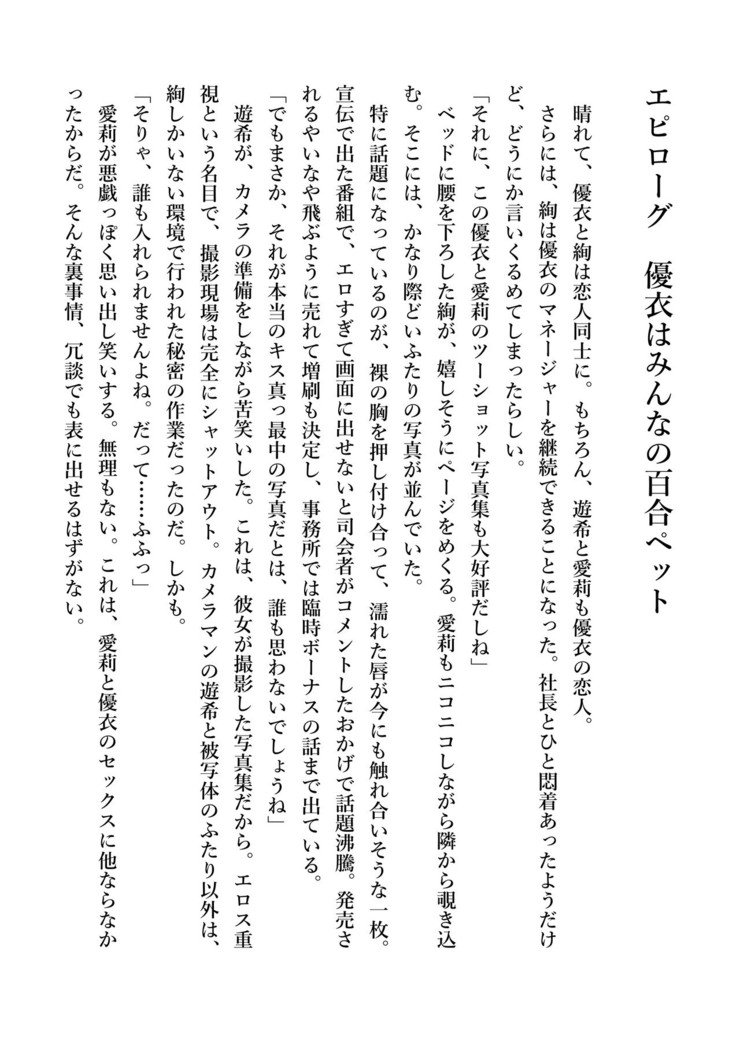 エピローグ　優衣はみんなの百合ペット
晴れて、優衣と絢は恋人同士に。もちろん、遊希と愛莉も優衣の恋人。
さらには、絢は優衣のマネージャーを継続できることになった。社長とひと悶着あったようだけ
ど、どうにか言いくるめてしまったらしい。
「それに、この優衣と愛莉のツーショット写真集も大好評だしね」
ベッドに腰を下ろした絢が、嬉しそうにページをめくる。愛莉もニコニコしながら隣から覗き込
む。そこには、かなり際どいふたりの写真が並んでいた。
特に話題になっているのが、裸の胸を押し付け合って、濡れた唇が今にも触れ合いそうな一枚。
宣伝で出た番組で、エロすぎて画面に出せないと司会者がコメントしたおかげで話題沸騰。発売さ
れるやいなや飛ぶように売れて増刷も決定し、事務所では臨時ボーナスの話まで出ている。
「でもまさか、それが本当のキス真っ最中の写真だとは、誰も思わないでしょうね」
遊希が、カメラの準備をしながら苦笑いした。これは、彼女が撮影した写真集だから。エロス重
視という名目で、撮影現場は完全にシャットアウト。カメラマンの遊希と被写体のふたり以外は、
絢しかいない環境で行われた秘密の作業だったのだ。しかも。
「そりゃ、誰も入れられませんよね。だって……ふふっ」
愛莉が悪戯っぽく思い出し笑いする。無理もない。これは、愛莉と優衣のセックスに他ならなか
ったからだ。そんな裏事情、冗談でも表に出せるはずがない。